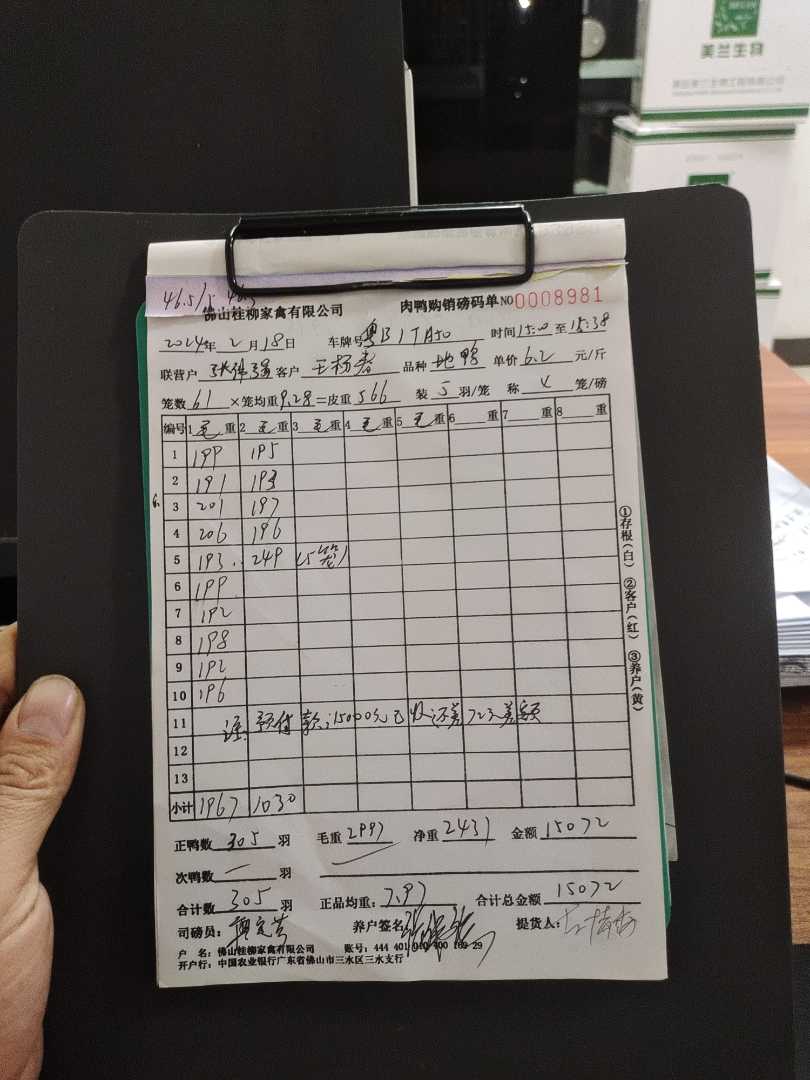 美兰生物
46.5/5 46.5
佛山桂柳家禽有限公司 肉鸭购销磅码单 NO 0008981
2024年 2月18日 车牌号 粤B1TA50 时间 15:00 至 15:38
联营户 客户 品种 地鸭 单价 6.2 元/斤
笼数 61 ×笼均重 9.28 =皮重 566 装 5 羽/笼 称 4 笼/磅
编号 1 毛 重 2 毛 重 3 毛 重 4 毛 重 5 毛 重 6 重 7 重 8 重
1 199 195
2 191 193
3 201 197
4 206 196
5 193 249 (5笼)
6 199
7 192
8 198
9 192
10 196
11 注: 预付款:15000元已收 还差72元差额
12
13
小计 1967 1030
正鸭数 305 羽 毛重 2997 净重 2431 金额 15072
次鸭数 一 羽
合计数 305 羽 正品均重: 7.97 合计总金额 15072
司磅员: 养户签名 提货人:
户 名: 佛山桂柳家禽有限公司 账号: 444 401 040 400 169 29
开户行: 中国农业银行广东省佛山市三水区三水支行
①存根(白) ②客户(红) ③养户(黄)